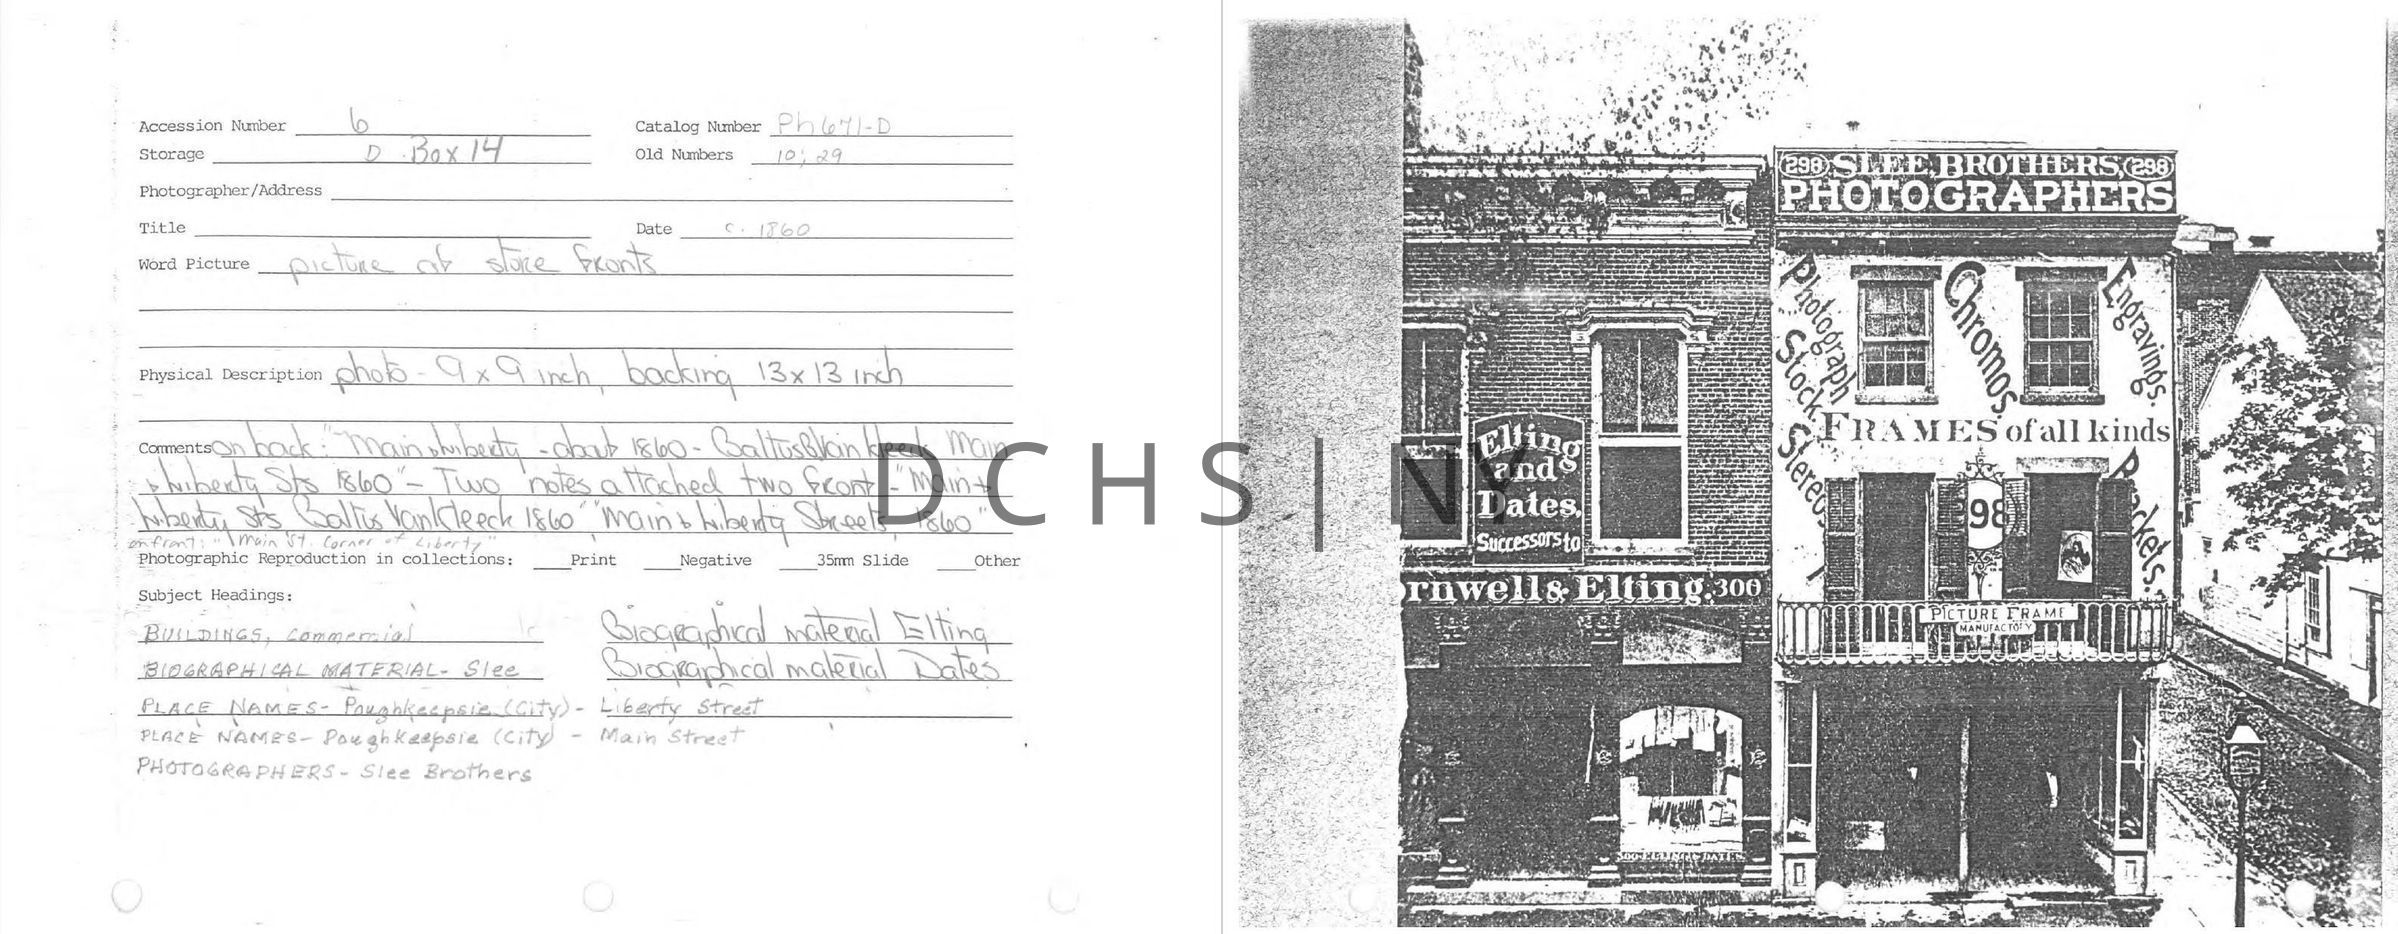 Accession Number 6
Catalog Number Ph671-D
Storage D Box 14
Old Numbers 10; 29
Photographer/Address
Title
Date c. 1860
Word Picture picture of store fronts
Physical Description photo - 9 x 9 inch, backing 13 x 13 inch
Comments on back: "Main & Liberty - about 1860 - Baltus B Van Kleeck Main
& Liberty Sts 1860" - Two notes attached two front - "Main +
Liberty Sts Baltus Van Kleeck 1860" "Main & Liberty Streets 1860"
on front: "Main St. Corner of Liberty"
Photographic Reproduction in collections: Print Negative 35mm Slide Other
Subject Headings:
BUILDINGS, Commercial
Biographical material Elting
BIOGRAPHICAL MATERIAL- Slee
Biographical material Dates
PLACE NAMES- Poughkeepsie (City) - Liberty Street
PLACE NAMES- Poughkeepsie (City) - Main Street
PHOTOGRAPHERS- Slee Brothers
DCHS|NY
298 SLEE BROTHERS, 298
PHOTOGRAPHERS
Photograph
Stock.
Chromos.
Engravings.
FRAMES of all kinds
Brackets.
298
PICTURE FRAME
MANUFACTORY
Elting
and
Dates,
Successors to
rnwell & Elting. 300
300 ELTING & DATES